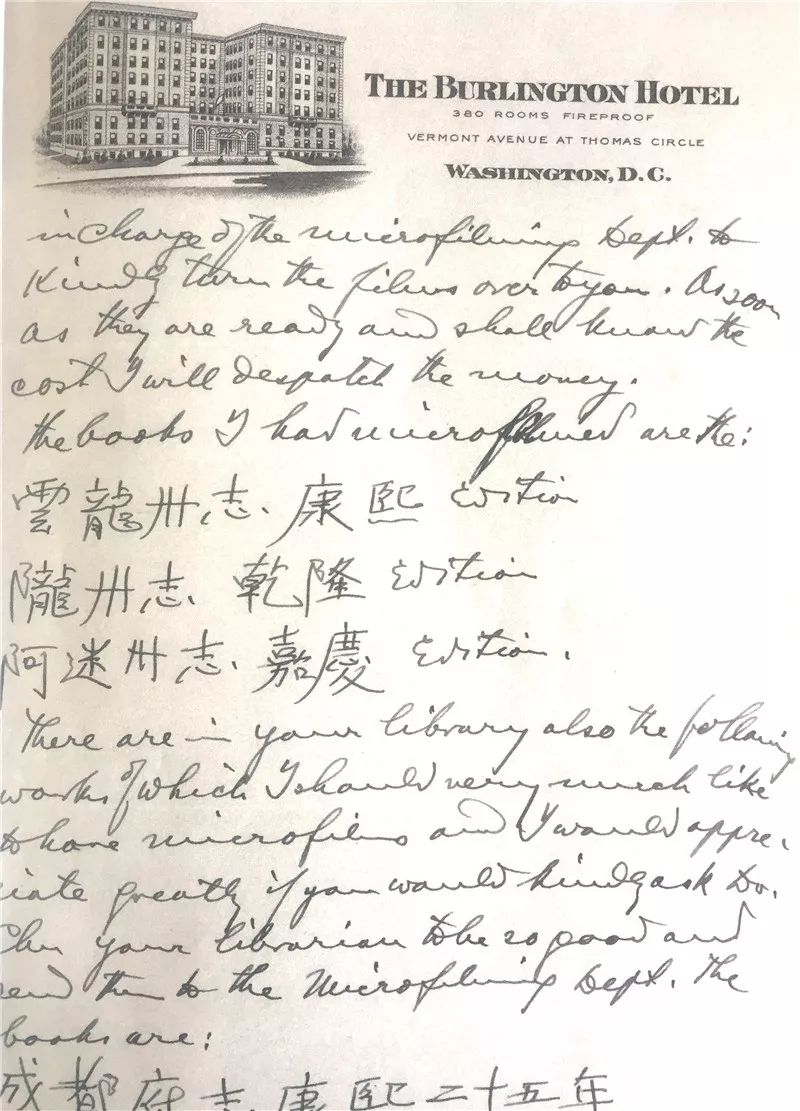 THE BURLINGTON HOTEL
380 ROOMS FIREPROOF
VERMONT AVENUE AT THOMAS CIRCLE
WASHINGTON, D.C.
in charge of the microfilming Dept. to
kindly turn the films over to you. As soon
as they are ready and shall know the
cost I will despatch the money.
The books I had microfilmed are the:
雲龍州志. 康熙 Edition
隴州志. 乾隆 Edition
阿迷州志. 嘉慶 Edition.
There are in your library also the following
works of which I should very much like
to have microfilms and I would appre-
ciate greatly if you would kindly ask Dr.
Chu your librarian to be so good and
send them to the Microfilming Dept. The
books are:
成都府志 康熙二十五年